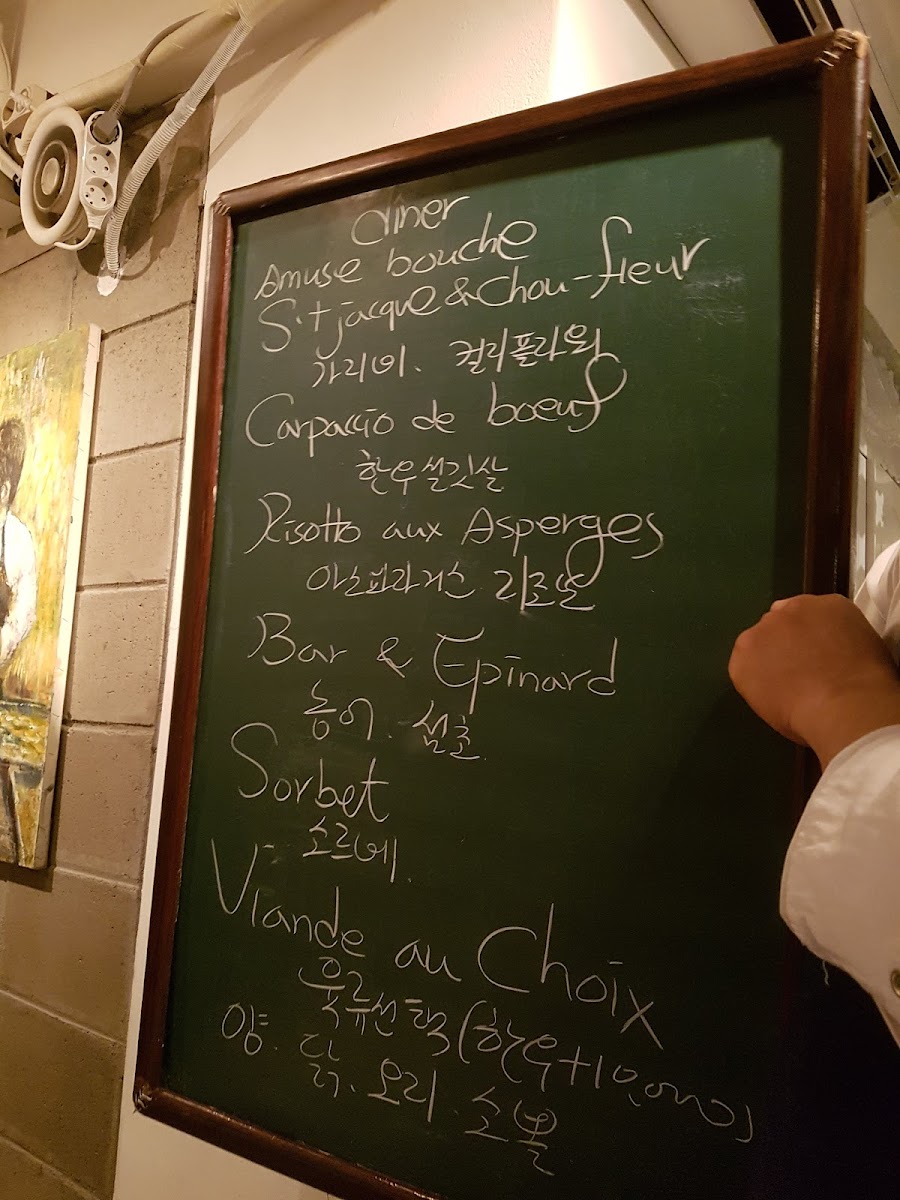 diner
Amuse bouche
S.t jacque & chou-fleur
가리비. 컬리플라워
Carpaccio de boeuf
한우설깃살
Risotto aux Asperges
아스파라거스 리조또
Bar & Epinard
농어. 섬초
Sorbet
소르베.
Viande au Choix
육류선택(한우+10,000)
양. 닭. 오리. 소볼